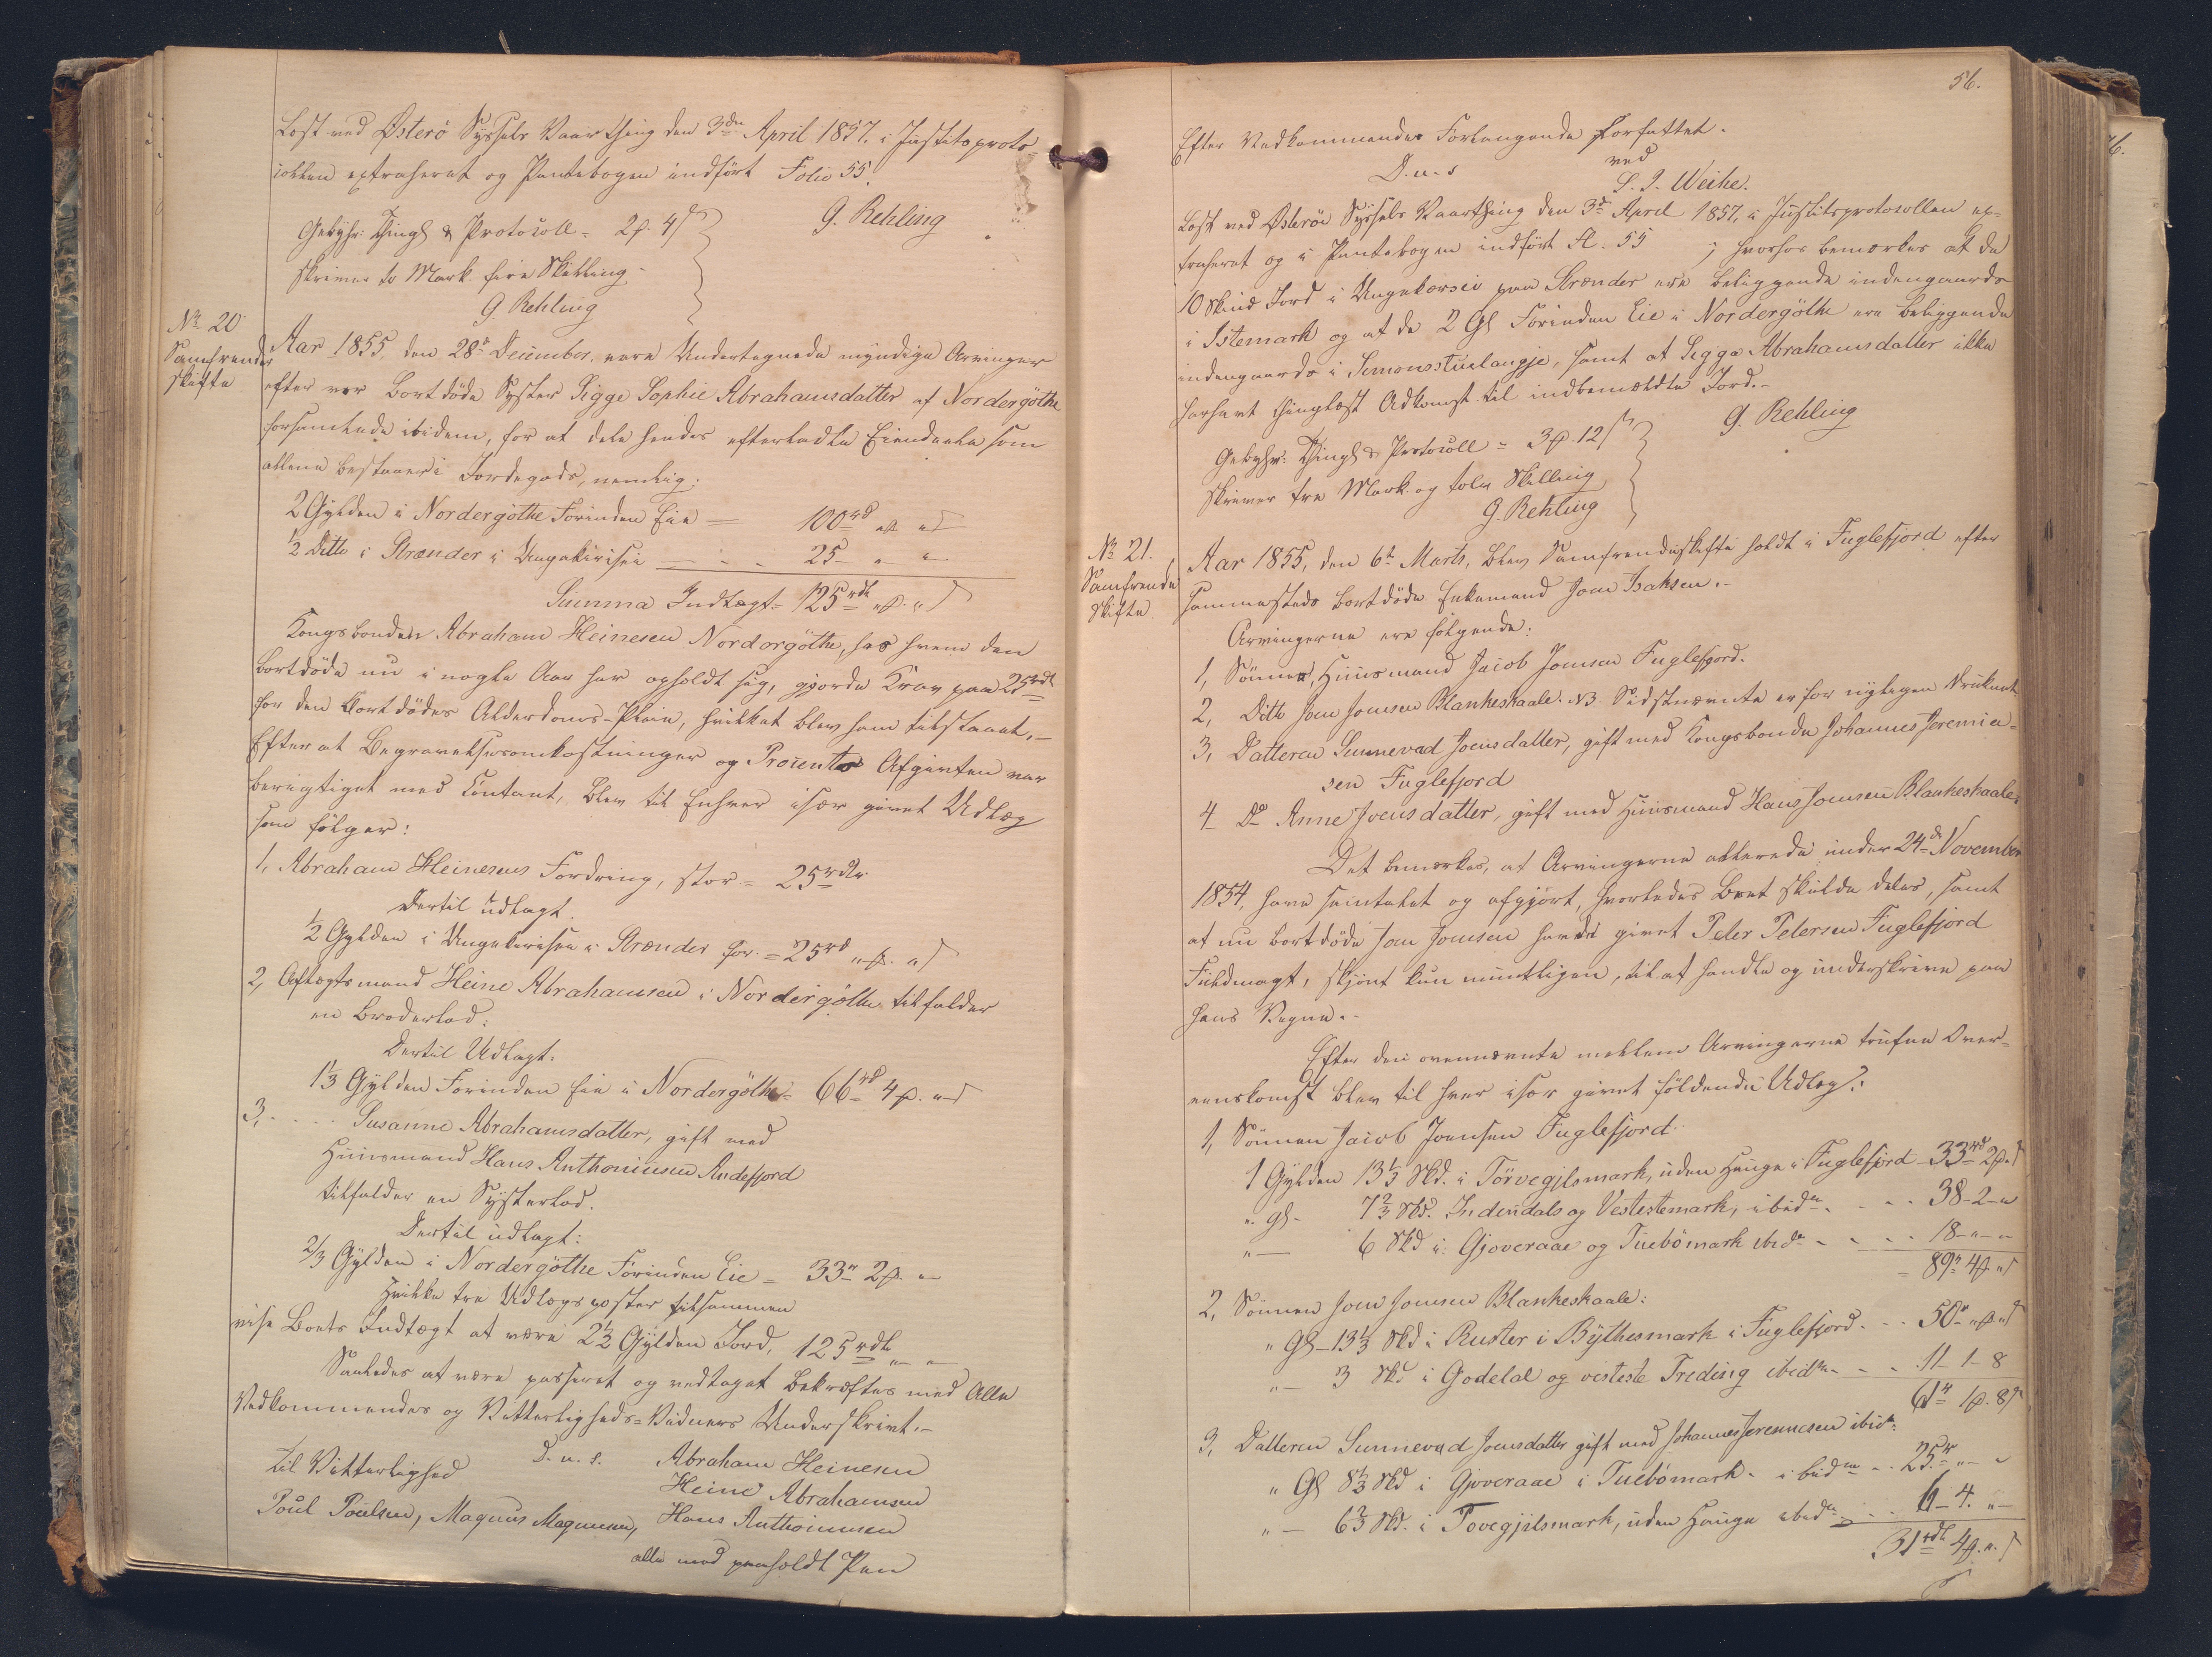 Læst ved Østerø Syssels Vaarthing den 3die April 1857. i Justitsproto-
collen extraheret og Pantebogen indført Folio 55.
G. Rehling
Gebyhr: Thingl & Protocoll = 2ꝑ. 4ſ
skriver to Mark. fire Skilling
G. Rehling
No 20
Samfrende
skifte
Aar 1855, den 28de December, vare Undertegnede myndige Arvinger
efter vor bortdøde Syster Sigge Sophie Abrahamsdatter af Nordergøthe
forsamlede ibidem, for at dele hendes efterladte Eiendeele som
allene bestaaer i Jordegods, nemlig:
2 Gylden i Nordergøthe Forinden Eie — 100rd „ꝑ „ſ
½ Ditto i Strænder i — 25 „ „
Summa Indtægt = 125rdl „ꝑ. „ſ
Kongsbonden Abraham Heinesen Nordorgøthe, hos hvem den
bortdøde nu i nogle Aar har opholdt sig, gjorde Krav paa 25rdl
for den bortdødes Alderdoms-Pleie, hvilket blev ham tilstaaet.—
Efter at Begravelsesomkostninger og Procents Afgivten var
berigtiget med Contant, blev til Enhver især givet Udlæg
som følger:
1, Abraham Heinesens Fordring, stor = 25rdlr
Dertil udlagt.
½ Gylden i Strænder for = 25rd „ꝑ. „ſ
2, Aftægtsmand Heine Abrahamsen i Nordergøthe tilfalder
en Broderlod:
Dertil Udlagt:
1⅓ Gylden Forinden Eie i Nordergøthe = 66rd 4ꝑ. „ſ
3, . . . . Susanne Abrahamsdatter, gift med
Huusmand Hans Anthoniusen Andefjord
tilfalder en Systerlod.
Dertil udlagt:
2/3 Gylden i Nordergøthe Forinden Eie = 33rd 2ꝑ. „
Hvilke tre Udlægsposter tilsammen
vise Boets Indtægt at være 2½ Gylden Jord, 125rdl „ „
Saaledes at være passeret og vedtaget bekræftes med Alle
Vedkommendes og Vitterligheds-Vidners Underskrivt.—
D. u. s. Abraham Heinesen
Til Vitterlighed Heine Abrahamsen
Poul Poulsen, Magnus Magnussen, Hans Anthoniusen
alle med paaholdt Pen
56.
Efter Vedkommendes Forlangende forfattet.
D. u. s ved
S. J. Weihe.
Læst ved Østerøe Syssels Vaarthing den 3die April 1857, i Justitsprotocollen ex-
traheret og i Pantebogen indført Fl. 55 ; hvorhos bemærkes at de
10 Skind Jord i paa Strænder ere beliggende indengaards
i Istemark og at de 2 Gl Forinden Eie i Nordergøthe ere beliggende
indengaards i Simonsstuelangje, samt at Sigga Abrahamsdatter ikke
har havt thinglæst Adkomst til indbemældte Jord.—
G. Rehling
Gebyhr: Thingl & Protocoll = 3ꝑ. 12ſ
skriver tre Mark og tolv Skilling
G. Rehling
No 21.
Samfrende
skifte
Aar 1855, den 6te Marts, blev Samfrendeskifte holdt i Fuglefjord efter
sammesteds bortdøde Enkemand Joen Isaksen.—
Arvingerne ere følgende:
1, Sønnen, Huusmand Jacob Joensen Fuglefjord.
2, Ditto Joen Joensen Blankeskaale. NB. Sidstnævnte er for nyligen druknet
3, Datteren Sunnevad Joensdatter, gift med Kongsbonde Johannes Joremia-
sen Fuglefjord
4 Do Anne Joensdatter, gift med Huusmand Hans Joensen Blankeskaale.
Det bemærkes, at Arvingerne allerede under 24de November
1854, have samtalet og afgjort, hvorledes Boet skulde deles, samt
at nu bortdøde Joen Joensen havde givet Peter Petersen Fuglefjord
Fuldmagt, skjønt kun mundtligen, til at handle og underskrive paa
hans Vegne.—
Efter den ovennævnte mellem Arvingerne trufne Over-
eenskomst blev til hver især givet følgende Udlæg:
1, Sønnen Jacob Joensen Fuglefjord.
1 Gylden 13⅓ Skd. i Törvegjilsmark, uden Hauge i Fuglefjord 33rd 2ꝑ. ſ
„ Gl. 7⅔ Skd. Indendals og Vestestemark, ibidm . . . 38 - 2 - „
„ — 6 Skd i Gjoveraae og Tuebömark ibidm . . . 18 - „ - „
= 89rd 4ꝑ „ſ
2, Sønnen Joen Joensen Blankeskaale:
„ Gl — 13⅓ Skd i Ruster i Bythesmark i Fuglefjord . . . 50rd „ꝑ „ſ
„ — 3 Skd i Godelal og vesteste Treding ibidm . . . 11 - 1 - 8
61rd 1ꝑ. 8ſ
3, Datteren Sunnevad Joensdatter gift med Johannes Jeremiesen ibidm:
„ Gl 8⅓ Skd i Gjoveraae i Tuebömark . ibidm . . . 25rd „ „
„ — 6⅔ Skd. i Tovegjilsmark, uden Hauge ibidm . . . 6 - 4. „
31rdl 4ꝑ. „ ſ